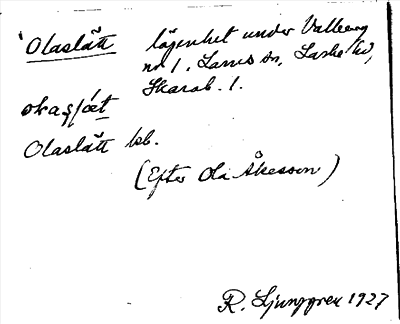 Olaslätt lägenhet under Valberg
nr 1. Larvs sn, Laske hd,
Skarab. l.
Olaslätt kb.
(Efter Ola Åkesson)
R. Ljunggren 1927